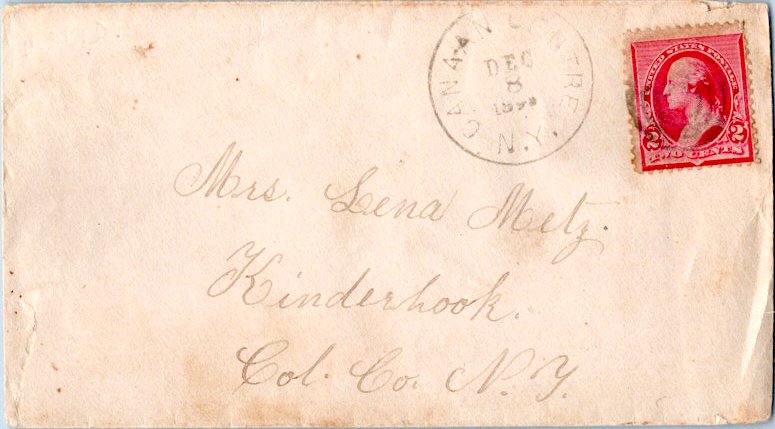 CANAAN CENTRE N.Y.
DEC
8
UNITED STATES POSTAGE
2 2
TWO CENTS
Mrs. Lena Metz.
Kinderhook.
Col. Co. N.Y.